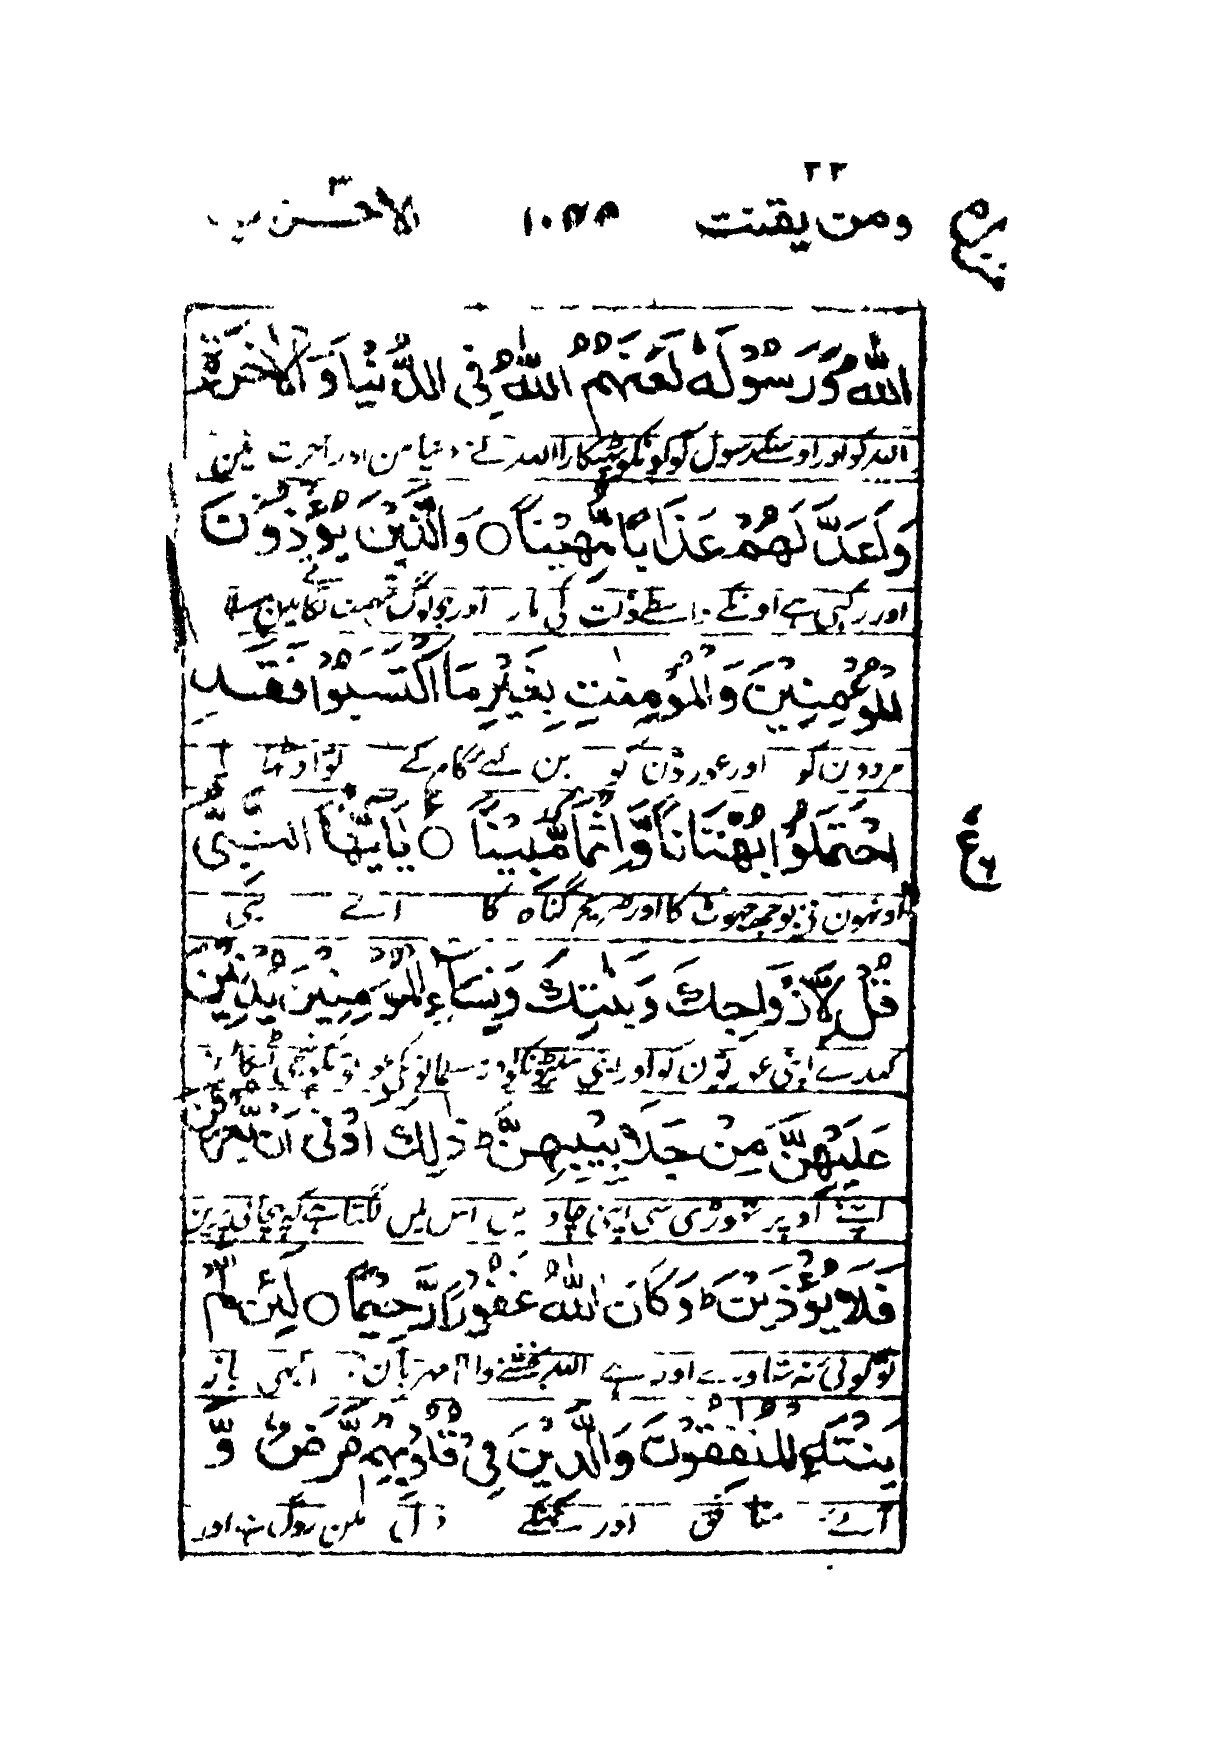 ومن یقنت ٢٢ الاحزاب ٣٣
اللّٰهَ وَرَسُوْلَهٗ لَعَنَهُمُ اللّٰهُ فِی الدُّنْیَا وَالْاٰخِرَةِ
اللہ کو اور اوسکے رسول کو اونکو پھٹکارا اللہ نے دنیا مین اور آخرت مین
وَاَعَدَّ لَهُمْ عَذَابًا مُّهِیْنًا ○ وَالَّذِیْنَ یُؤْذُوْنَ
اور رکھی ہے اونکے واسطے ذلت کی مار اور جو لوگ تہمت لگاتے ہین
الْمُؤْمِنِیْنَ وَالْمُؤْمِنٰتِ بِغَیْرِ مَا اكْتَسَبُوْا فَقَدِ
مردون کو اور عورتون کو بن کیے کام کے تو اوٹھایا
احْتَمَلُوْا بُهْتَانًا وَّاِثْمًا مُّبِیْنًا ○ یٰاَیُّهَا النَّبِیُّ
اونہون نے بوجھ جھوٹ کا اور صریح گناہ کا اے نبی
قُلْ لِّاَزْوَاجِكَ وَبَنٰتِكَ وَنِسَآءِ الْمُؤْمِنِیْنَ یُدْنِیْنَ
کہدے اپنی عورتون کو اور اپنی
عَلَیْهِنَّ مِنْ جَلَابِیْبِهِنَّ ط ذٰلِكَ اَدْنٰی اَنْ یُّعْرَفْنَ
اپنے اوپر تھوڑی سی اپنی چادرین اس مین لگتا ہے کہ پہچانی پڑین
فَلَا یُؤْذَیْنَ ط وَكَانَ اللّٰهُ غَفُوْرًا رَّحِیْمًا ○ لَئِنْ لَّمْ
تو کوئی نہ ستاوے اور ہے اللہ بخشنے والا مہربان کبھی باز
یَنْتَهِ الْمُنٰفِقُوْنَ وَالَّذِیْنَ فِیْ قُلُوْبِهِمْ مَّرَضٌ وَّ
آئے منافق اور جنکے دل مین روگ ہے اور